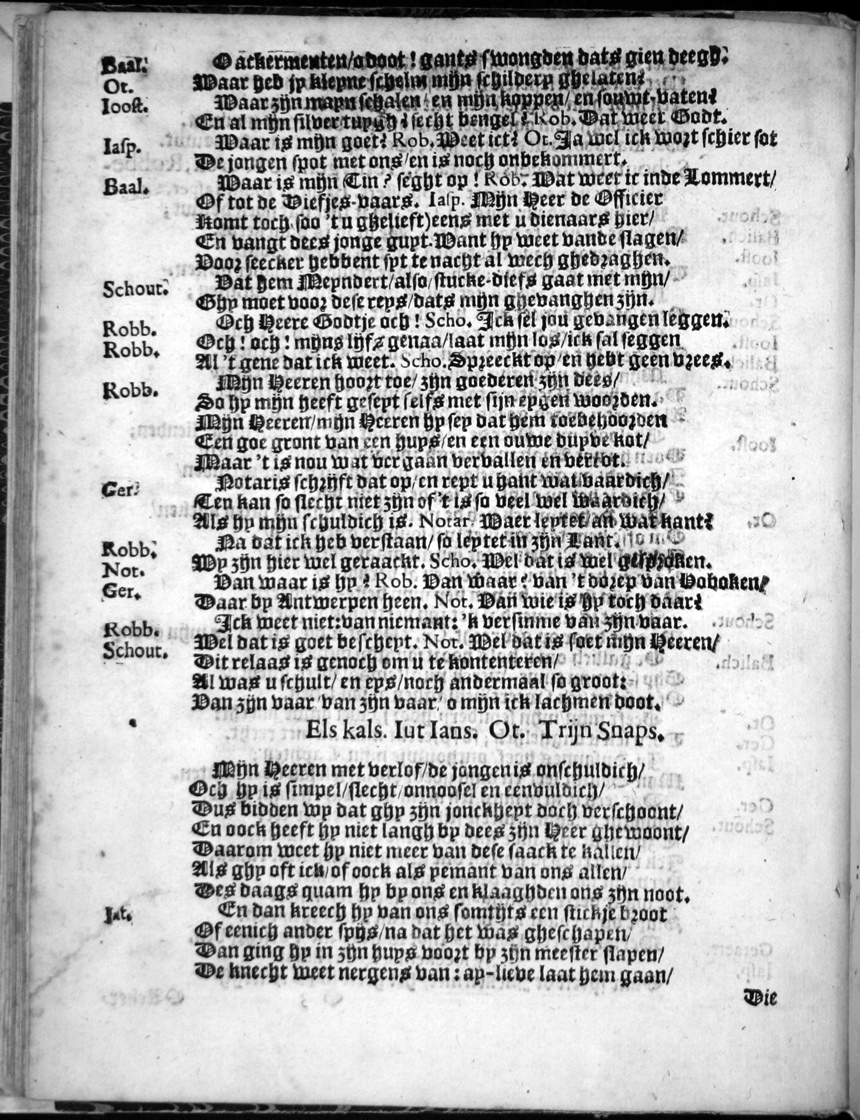 Baal. O ackermenten/o doot! gants swongden dats gien deegh.
Ot. Waar heb jy kleyne schelm mijn schildery ghelaten?
Ioost. Waar zijn mayn schalen/ en mijn koppen/ en souwt-vaten?
En al mijn silver tuygh? secht bengel? Rob. Dat weer Godt.
Iasp. Waar is mijn goet? Rob. Weet ict? Ot. Ja wel ick wort schier sot
De jongen spot met ons/en is noch onbekommert.
Baal. Waar is mijn Tin? seght op! Rob. Wat weet ic inde Lommert/
Of tot de Diefjes-vaars. Iasp. Mijn Heer de Officier
Komt toch soo 't u ghelieft)eens met u dienaars hier/
En vangt dees jonge guyt. Want hy weet vande slagen/
Voor seecker hebbent syt te nacht al wech ghedraghen.
Schout. Dat hem Meyndert/also/stucke-diefs gaat met mijn/
Ghy moet voor dese reys/dats mijn ghevanghen zijn.
Robb. Och Heere Godtje och! Scho. Ick sel jou gevangen leggen.
Robb. Och! och! mijns lijfs genaa/laat mijn los/ick sal seggen
Al 't gene dat ick weet. Scho. Spreeckt op/en hebt geen vrees.
Robb. Mijn Heeren hoort toe/ zijn goederen zijn dees/
So hy mijn heeft geseyt selfs met sijn eygen woorden.
Mijn Heeren/mijn Heeren hy sey dat hem toebehoorden
Een goe gront van een huys/en een ouwe duyve kot/
Maar 't is nou wat vergaan vervallen en verrot.
Ger. Notaris schrijft dat op/en rept u hant wat vaardich/
Ten kan so slecht niet zijn of 't is so veel wel waardich/
Als hy mijn schuldich is. Notar. Waer leytet an wat kant?
Robb. Na dat ick heb verstaan/ so leytet in zijn Lant.
Not. Wy zijn hier wel geraackt. Scho. Wel dat is wel gesproken.
Ger. Van waar is hy? Rob. Van waar? van 't dorep van Hoboken/
Daar by Antwerpen heen. Not. Van wie is hy toch daar?
Robb. Ick weet niet: van niemant: 'k versinme van zijn vaar.
Schout. Wel dat is goet bescheyt. Not. Wel dat is soet mijn Heeren/
Dit relaas is genoch om u te kontenteren/
Al was u schult/ en eys/noch andermaal so groot:
Van zijn vaar van zijn vaar/ o mijn ick lachmen doot.
Els kals. Iut Ians. Ot. Trijn Snaps.
Mijn Heeren met verlof/de jongen is onschuldich/
Och hy is simpel/slecht/onnoosel en eenvuldich/
Dus bidden wy dat ghy zijn jonckheyt doch verschoont/
En oock heeft hy niet langh by dees zijn Heer ghewoont/
Daarom weet hy niet meer van dese saack te kallen/
Als ghy oft ick/of oock als yemant van ons allen/
Des daags quam hy by ons en klaaghden ons zijn noot.
Jut. En dan kreech hy van ons somtijts een stickje broot
Of eenich ander spijs/na dat het was gheschapen/
Dan ging hy in zijn huys voort by zijn meester slapen/
De knecht weet nergens van: ay-lieve laat hem gaan/
Die